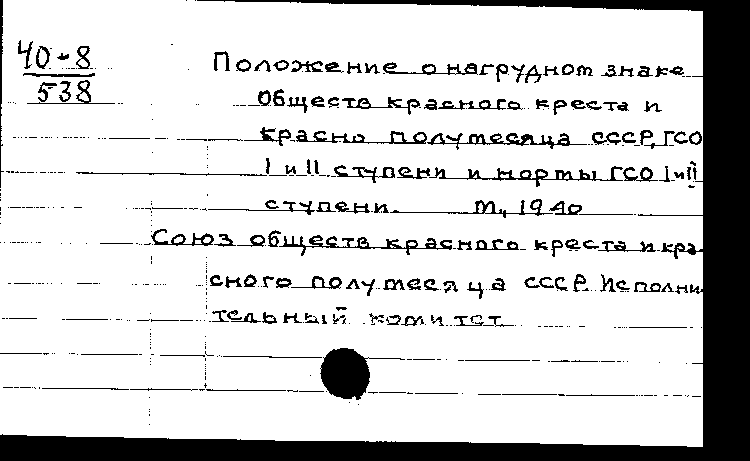 40-8
538
Положение о нагрудном знаке
Обществ красного креста и
красно полумесяца СССР, ГСО
I и II ступени и нормы ГСО I и II
ступени. М., 1940
Союз обществ красного креста и кра-
сного полумесяца СССР. Исполни-
тельный комитет